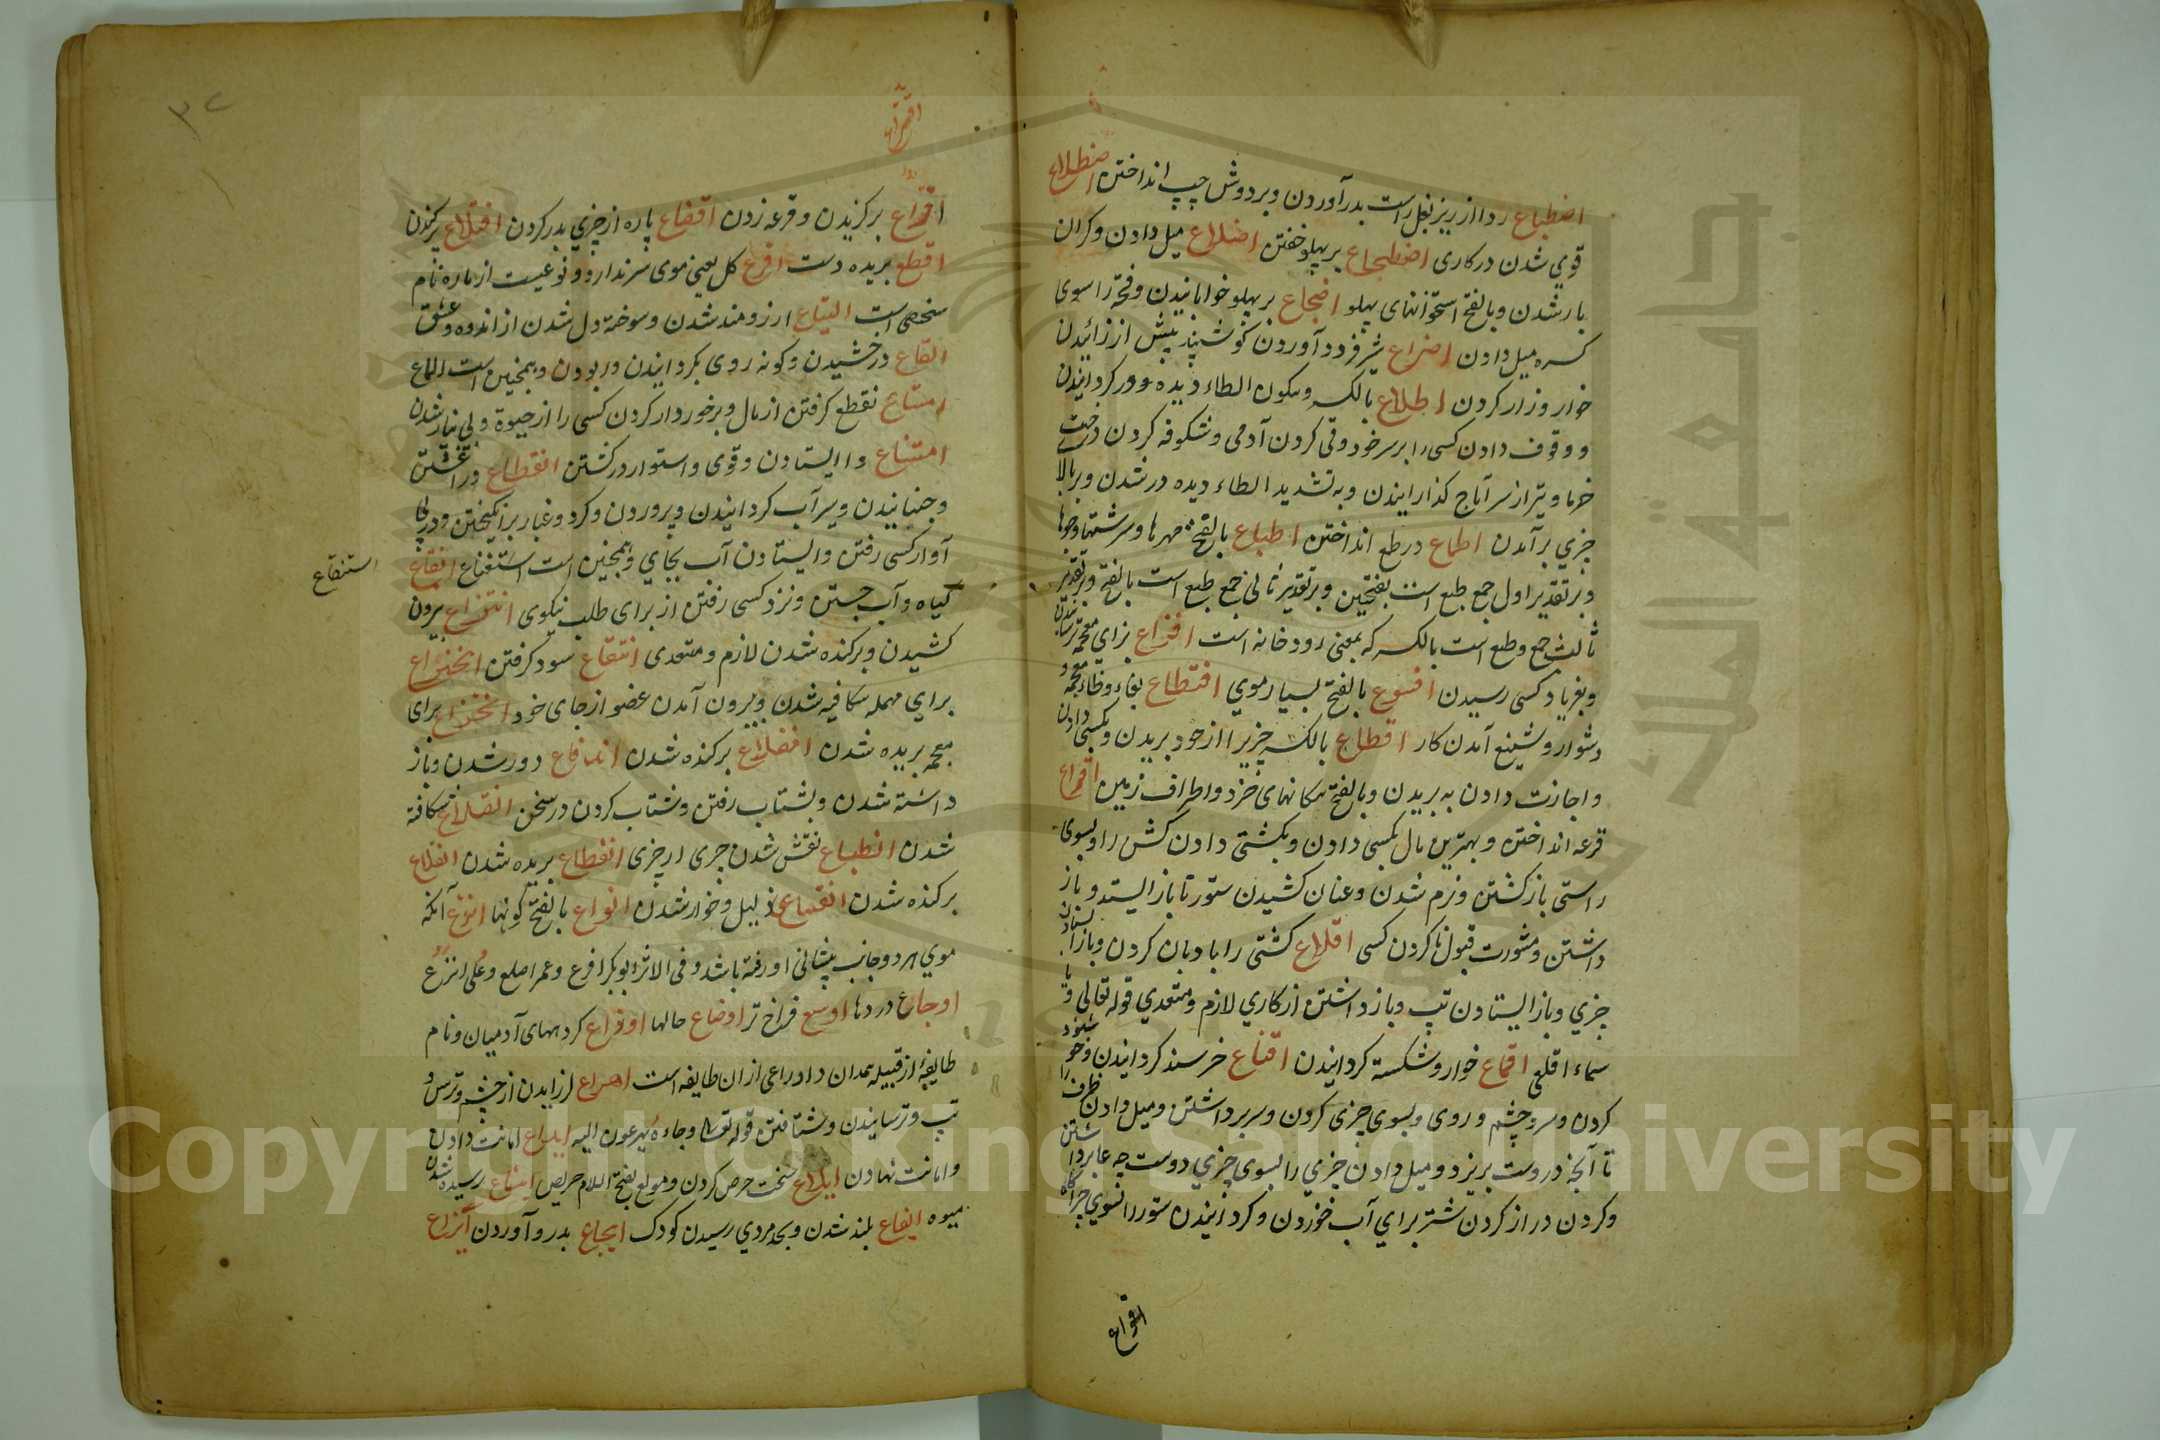 اضطباع ردا از زیر بغل راست بدر آوردن و بر دوش چپ انداختن اضطلاع
قوی شدن در کاری اضطجاع بر پهلو خفتن اضلاع میل دادن و کران
بار شدن و بالفتح استخوانهای پهلو اضجاع بر پهلو خوابانیدن و فتحه را سوی
کسره میل دادن اضراع شیر فرود آوردن گوسپند پیش از زائیدن
خوار و زار کردن اطلاع بالکسر و سکون الطاء دیده ور کردانیدن
و وقوف دادن کسی را بر سر خود و قی کردن آدمی و شکوفه کردن درخت
خرما و تیر از سر آماج کذارانیدن و به تشدید الطاء دیده در شدن و بر بالا
چزي بر آمدن اطماع در طمع انداختن اطباع بالفتح مهرها و سرشتها و جویها
و بر تقدیر اول جمع طبع است بفتحتین و بر تقدیر ثانی جمع طبع است بالفتح و بر تقدیر
ثالث جمع وطبع است بالکسر که بمعنی رودخانه است افزاع بزای معجمه ترسانیدن
و بفریاد کسی رسیدن افروع بالفتح بسیار موي افتظاع بفاء و ظاء معجمه
دشوار و شنیع آمدن کار اقطاع بالکسر چزیرا از خود بریدن و بکسی دادن
و اجازت دادن به بریدن و بالفتح مکانهای خرد و اطراف زمین اقراع
قرعه انداختن و بهترین مال بکسی دادن و بکشتی دادن کش را و بسوی
راستی باز کشتن و نرم شدن و عنان کشیدن ستور تا باز ایستد و باز
داشتن و مشورت قبول ناکردن کسی اقلاع کشتی را بادبان کردن و باز ایستادن
چزي و باز ایستادن تپ و باز داشتن از کاري لازم و متعدي قوله تعالی و یا
سماء اقلعی اقماع خوار و شکسته کردانیدن اقناع خرسند کردانیدن و خوشنود
کردن و سر و چشم و روی و بسوی چزی کردن و سر برداشتن و میل دادن ظرف را
تا آنچه دروست بریزد و میل دادن چزي را بسوي چزي دوست چه عا برداشتن
و کردن دراز کردن شتر براي آب خوردن و کردانیدن ستور را بسوي چراگاه
اقتراع
اقتراع
اقتراع بر کزیدن و قرعه زدن اقفاع پاره از چزي بدر کردن اقتلاع بر کندن
اقطع بریده دست اقرع کل یعنی موی سر ندارد و نوعیست از ماره نام
شخصی است التیاع ارزومند شدن و سوخته دل شدن از اندوه و عشق
التماع درخشیدن و کونه روی بکردانیدن و ربودن و همچنین است الماع
امتاع نقطع کرفتن از مال و برخوردار کردن کسی را از حیوة و بی نیاز شدن
امتناع وا ایستادن و قوی و استوار در کشتن انقطاع در افتادن
و جنبانیدن و سیرآب کردانیدن و پروردن و کرد و غبار بر انکیختن و در پی
آواز کسی رفتن و ایستادن آب بجاي و همچنین است استنقاع انتجاع
استنقاع
کیاه و آب جستن و نزد کسی رفتن از برای طلب نیکوی انتزاع بیرون
کشیدن و برکنده شدن لازم و متعدی انتفاع سود کرفتن انخراع
براي مهمله شکافیه شدن و بیرون آمدن عضو از جای خود انخزاع براي
معجمه بریده شدن انقلاع برکنده شدن اندفاع دور شدن و باز
داشته شدن و بشتاب رفتن و شتاب کردن در سخن انفلاع شکافته
شدن انطباع نقش شدن چزی از چزی انقطاع بریده شدن انقلاع
برکنده شدن انقماع ذلیل و خوار شدن انواع بالفتح کونها انزع آنکه
موي هر دو جانب پیشانی او رفته باشد و فی الاثر ابوبکر افرع و عمر اصلع و علی انزع
اوجاع دردها اوسع فراخ تر اوضاع حالها اوزاع کردهای آدمیان و نام
طایفهٔ از قبیله همدان و اوزاعی از ان طایفه است اهراع لرزایدن از خشم و ترس و
تپ و ترسانیدن و شتافتن قوله تعالی و جاءه یهرعون الیه ایداع امانت دادن
و امانت نهادن ایلاع سخت حرص کردن و مولع بفتح اللام حریص ایناع رسیده شدن
میوه ایفاع بلند شدن و بحد مردي رسیدن کودک ایجاع بدرد آوردن ایزاع